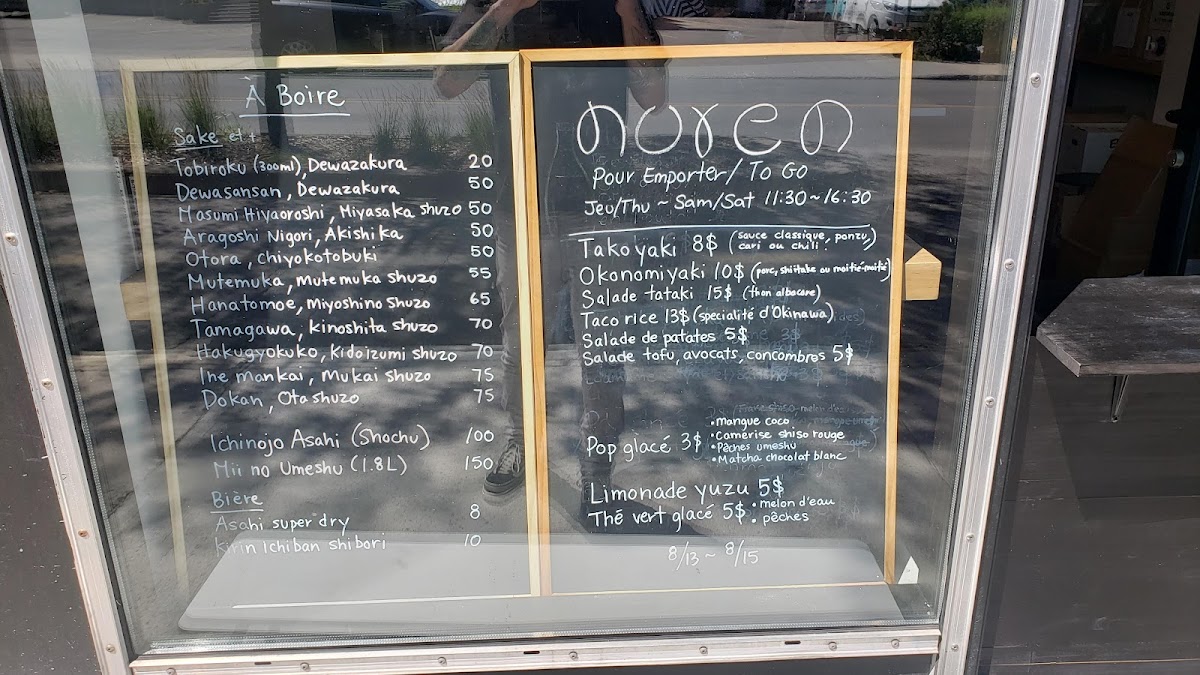 À Boire
Sake et +
Tobiroku (300ml), Dewazakura 20
Dewasansan, Dewazakura 50
Masumi Hiyaoroshi, Miyasaka shuzo 50
Aragoshi Nigori, Akishika 50
Otora, chiyokotobuki 50
Mutemuka, mutemuka shuzo 55
Hanatomoe, Miyoshino shuzo 65
Tamagawa, kinoshita shuzo 70
Hakugyokuko, kidoizumi shuzo 70
Ine mankai, Mukai shuzo 75
Dokan, Ota shuzo 75
Ichinojo Asahi (Shochu) 100
Mii no Umeshu (1.8L) 150
Bière
Asahi super dry 8
Kirin Ichiban shibori 10
noren
Pour Emporter/ To Go
Jeu/Thu ~ Sam/Sat 11:30 ~ 16:30
Takoyaki 8$ (sauce classique, ponzu, cari ou chili)
Okonomiyaki 10$ (porc, shiitake ou moitié-moitié)
Salade tataki 15$ (thon albacore)
Taco rice 13$ (specialité d'Okinawa)
Salade de patates 5$
Salade tofu, avocats, concombres 5$
Pop glacé 3$
• mangue coco
• Camerise shiso rouge
• Pêches umeshu
• Matcha chocolat blanc
Limonade yuzu 5$
Thé vert glacé 5$ • melon d'eau
• pêches
8/13 ~ 8/15